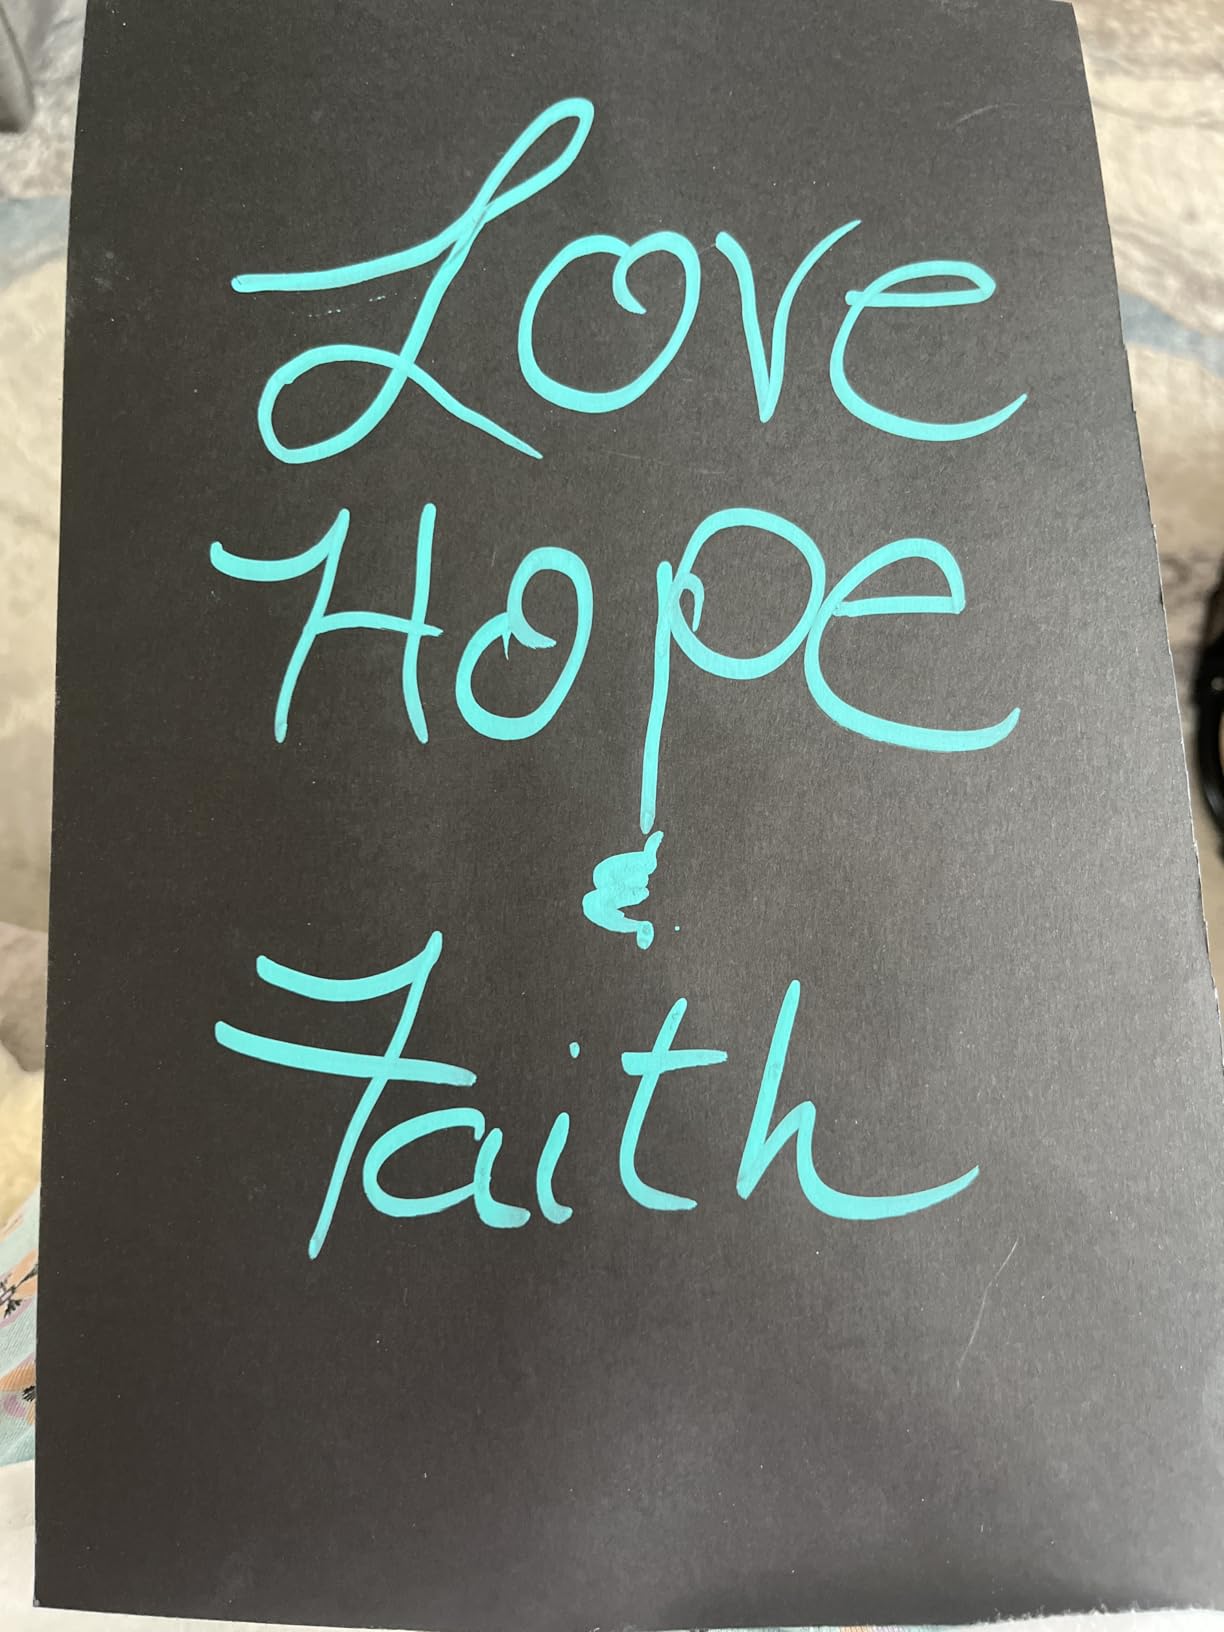 Love
Hope
&
Faith